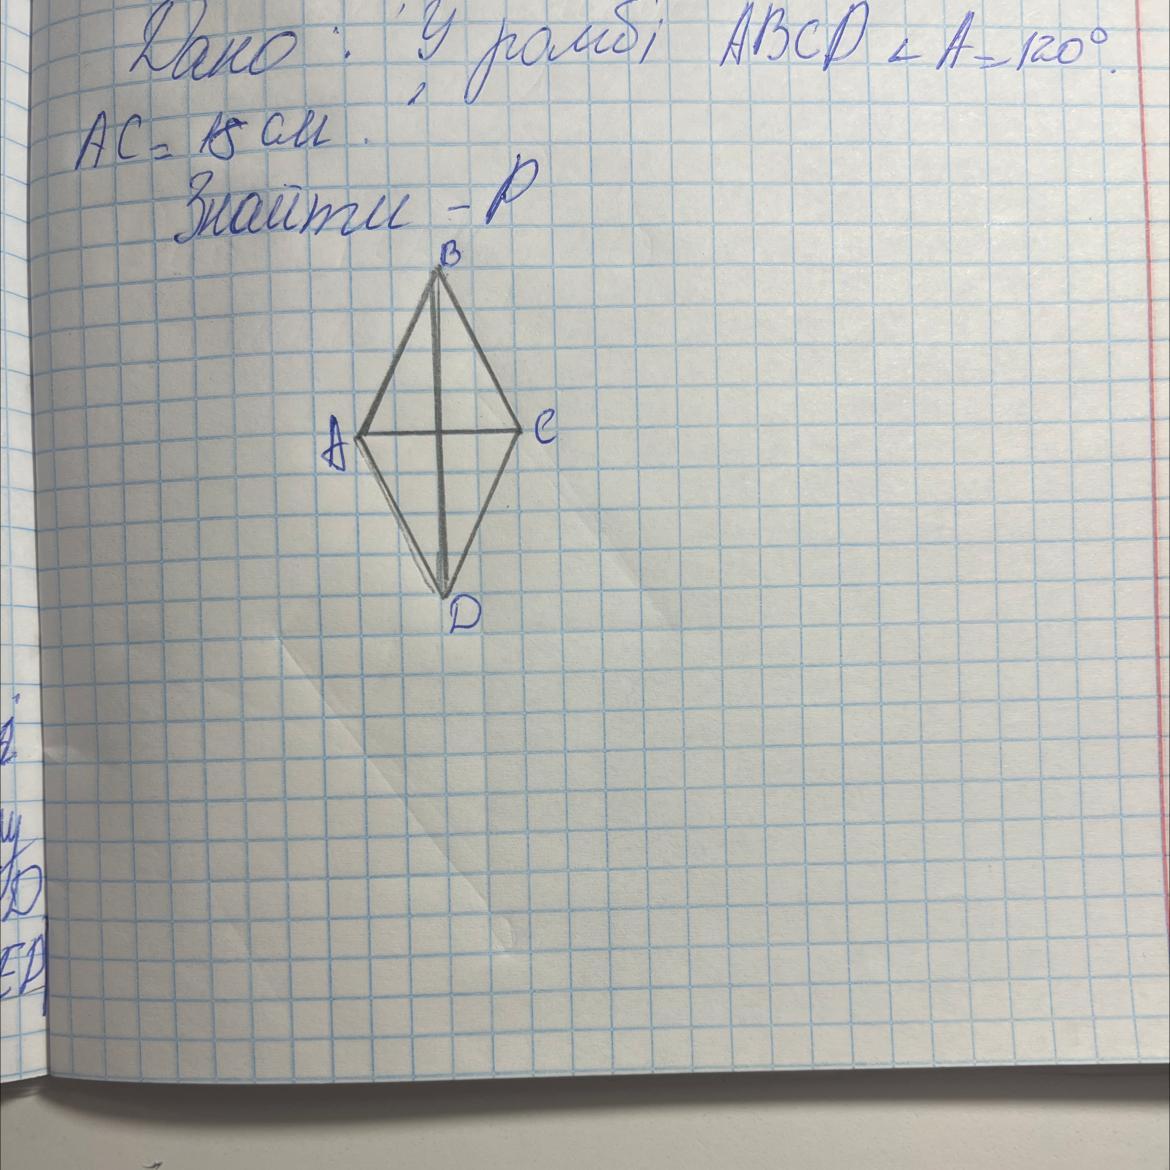 Дано: У ромбі ABCD ∠A=120°.
AC= 18 см.
Знайти - P
B
A
C
D